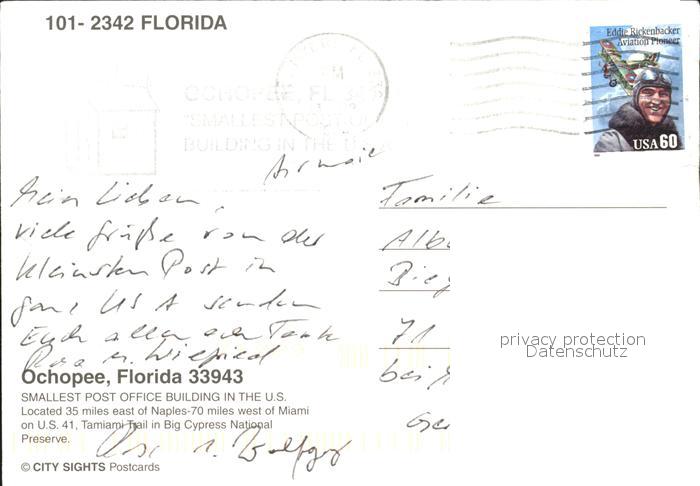 101- 2342 FLORIDA
Eddie Rickenbacker
Aviation Pioneer
USA 60
OCHOPEE, FL
"SMALLEST POST OF
BUILDING IN THE U
Airmail
Mein Lieben,
viele Grüße von der
kleinsten Post in
ganz USA senden
Euch allen
Rosa u. Wilfried
Familie
Alb
Bie
71
bei
privacy protection
Datenschutz
Ochopee, Florida 33943
SMALLEST POST OFFICE BUILDING IN THE U.S.
Located 35 miles east of Naples-70 miles west of Miami
on U.S. 41, Tamiami Trail in Big Cypress National
Preserve.
© CITY SIGHTS Postcards